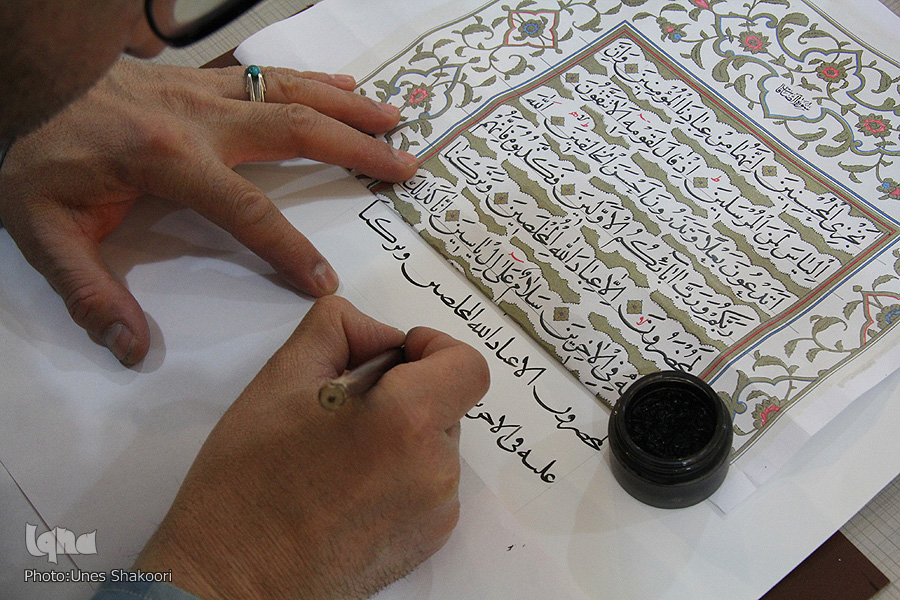 نَجْزِی الْمُحْسِنینَ اِنَّهُما مِنْ عِبادِنَا الْمُؤْمِنینَ وَاِنَّ
اِلْیاسَ لَمِنَ الْمُرْسَلینَ اِذْ قالَ لِقَوْمِهِ اَلا تَتَّقُونَ
اَتَدْعُونَ بَعْلًا وَتَذَرُونَ اَحْسَنَ الْخالِقینَ اَللهَ
رَبَّکُمْ وَرَبَّ آبائِکُمُ الْاَوَّلینَ فَکَذَّبُوهُ فَاِنَّهُمْ
لَمُحْضَرُونَ اِلّا عِبادَ اللهِ الْمُخْلَصینَ وَتَرَکْنا
عَلَیْهِ فِی الْآخِرینَ سَلامٌ عَلی اِلْ یاسینَ اِنّا کَذلِکَ
لمحضرون الا عباد الله المخلصین و ترکنا
علیه فی الاخر
iqna
Photo:Unes Shakoori